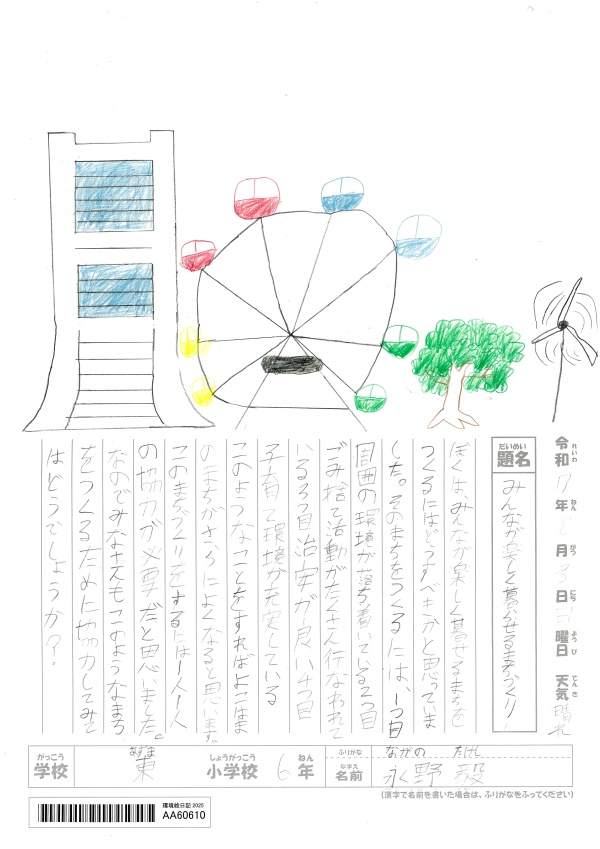 令和 7年 月 日 曜日 天気 晴れ
れいわ ねん がつ にち ようび てんき
だいめい
題名 みんなが楽しく暮らせるまちづくり
ぼくは、みんなが楽しく暮せるまちを
つくるにはどうすべきかと思っていま
した。そのまちをつくるには、1つ目
周囲の環境が落ち着いている2つ目
ごみ捨て活動がたくさん行なわれて
いる3つ目治安が良い4つ目
子育て環境が充実している
このようなことをすればよこはま
のまちがさらによくなると思います。
このまちづくりをするには一人一人
の協力が必要だと思いました。
なのでみなさんもこのようなまち
をつくるために協力してみて
はどうでしょうか?
がっこう
学校
あずま
東
しょうがっこう
小学校
6
ねん
年
ふりがな ながの たけし
なまえ
名前 永野
(漢字で名前を書いた場合は、ふりがなをふってください)
環境絵日記 2025
AA60610